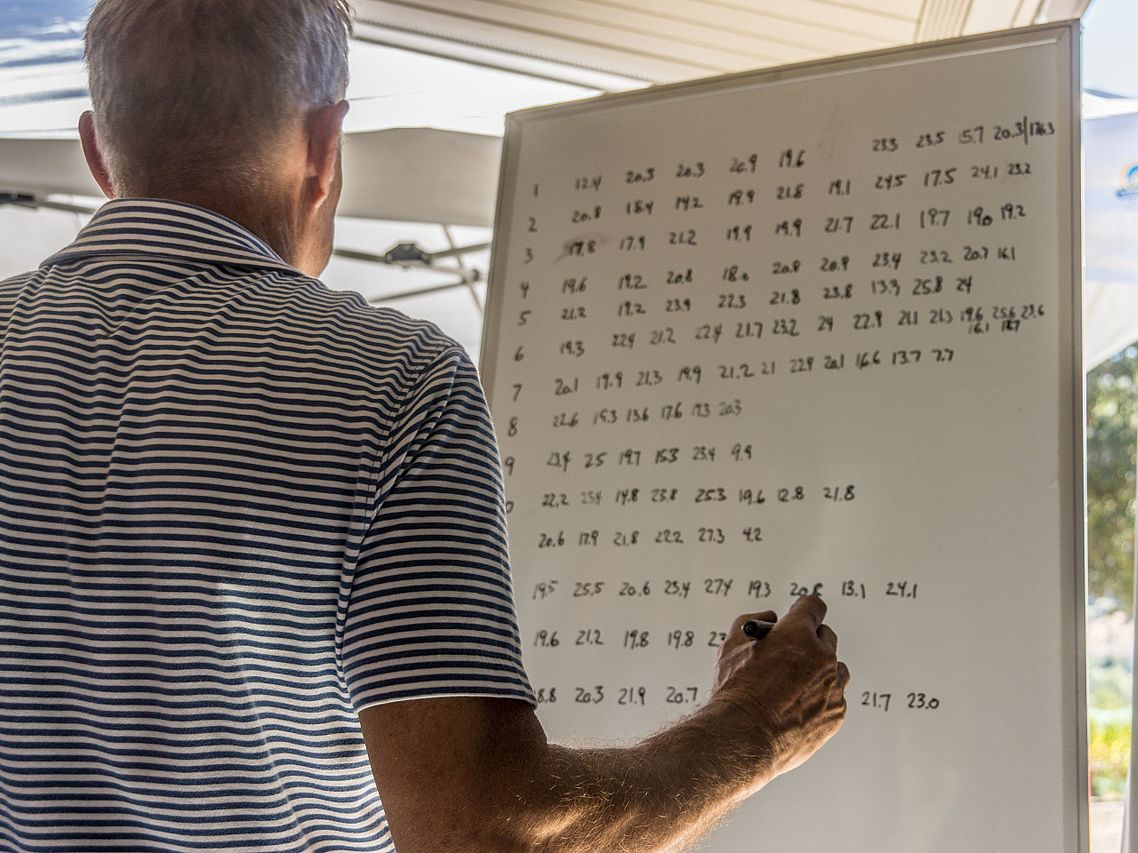 1 12.4 20.3 20.3 20.9 19.6 23.3 23.5 15.7 20.3
2 20.8 18.4 14.2 19.9 21.8 19.1 24.5 17.5 24.1 23.2
3 17.8 17.9 21.2 19.9 19.9 21.7 22.1 19.7 19.0 19.2
4 19.6 19.2 20.8 18.0 20.8 20.9 23.4 23.2 20.7 16.1
5 21.2 19.2 23.9 22.3 21.8 23.8 13.3 25.8 24
6 19.3 22.4 21.2 22.4 21.7 23.2 24 22.9 21.1 21.3 19.6 25.6 23.6
16.1 18.7
7 20.1 19.9 21.3 19.9 21.2 21 22.9 20.1 16.6 13.7 7.7
8 22.6 19.3 13.6 17.6 19.3 20.3
9 23.4 25 19.7 15.3 23.4 9.9
0 22.2 23.4 14.8 23.8 25.3 19.6 12.8 21.8
20.6 17.9 21.8 22.2 27.3 4.2
19.5 25.5 20.6 23.4 27.4 19.3 13.1 24.1
19.6 21.2 19.8 19.8
8.8 20.3 21.9 20.7 21.7 23.0